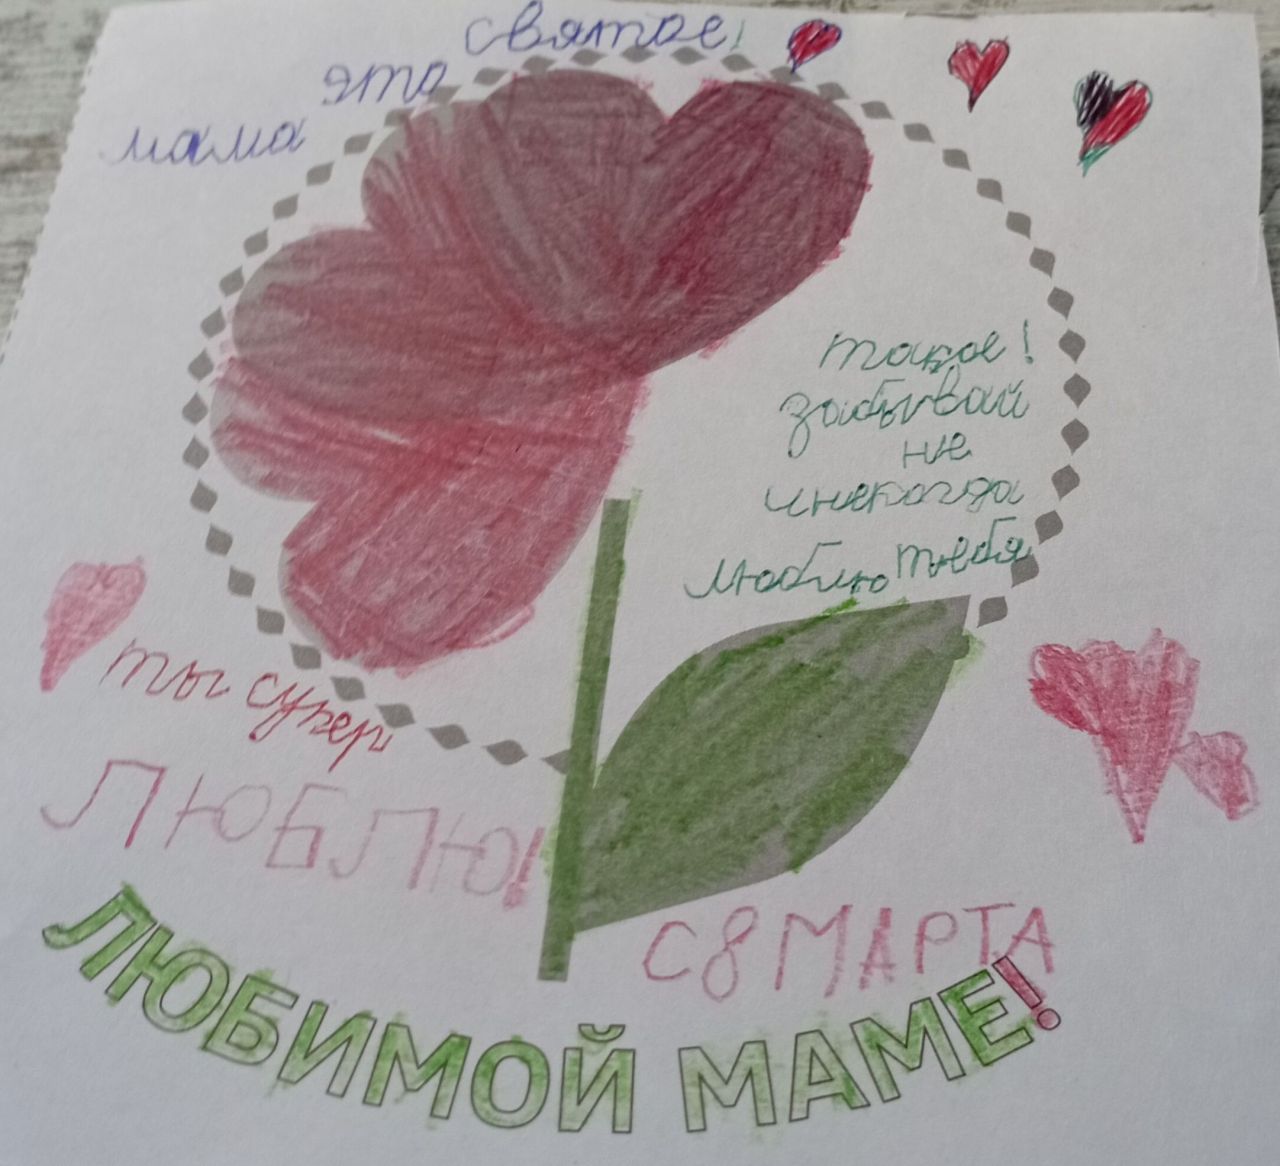 мама это святое!
такое!
забывай
не
и некогда
люблю тебя
ты супер
ЛЮБЛЮ!
С 8 МАРТА
ЛЮБИМОЙ МАМЕ!